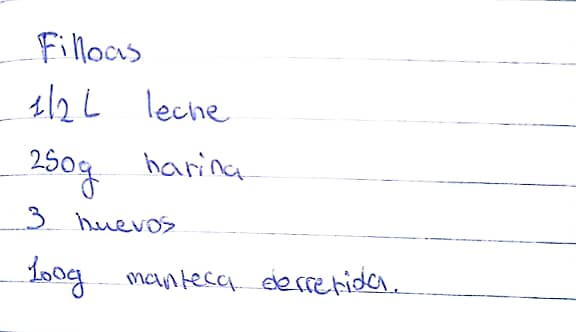 Filloas
1/2 L leche
250g harina
3 huevos
100g manteca derretida.